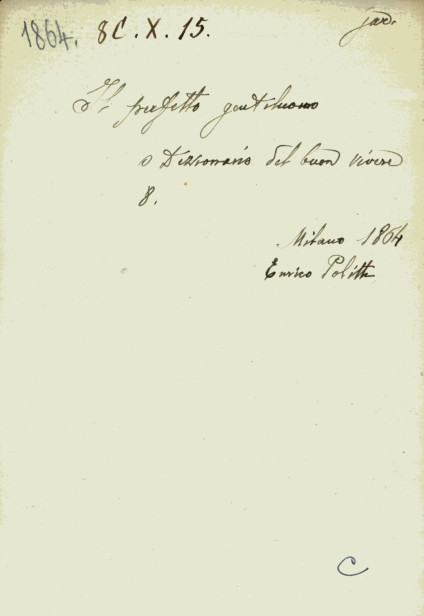 1864. 8C.X.15.
Il perfetto gentiluomo
o Dizionario del buon vivere
8.
Milano 1864
Enrico Politti
C